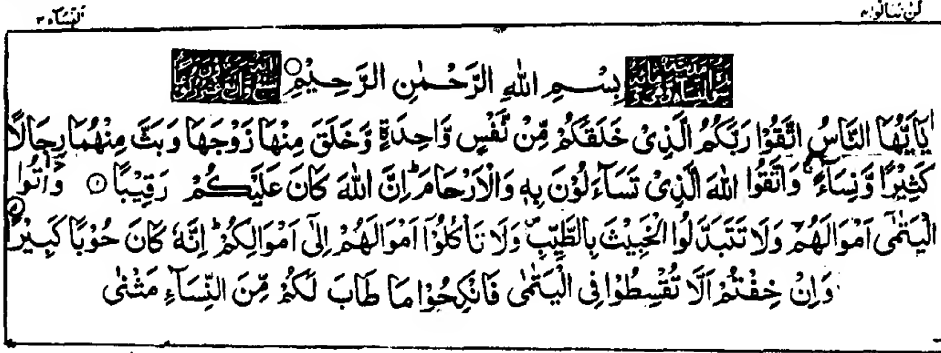 لن تنالوا ۴
النسآء ۴
بِسْمِ اللهِ الرَّحْمٰنِ الرَّحِيْمِ
يٰاَيُّهَا النَّاسُ اتَّقُوْا رَبَّكُمُ الَّذِيْ خَلَقَكُمْ مِّنْ نَّفْسٍ وَّاحِدَةٍ وَّخَلَقَ مِنْهَا زَوْجَهَا وَبَثَّ مِنْهُمَا رِجَالًا
كَثِيْرًا وَّنِسَآءً ۚ وَاتَّقُوا اللهَ الَّذِيْ تَسَآءَلُوْنَ بِهٖ وَالْاَرْحَامَ ؕ اِنَّ اللهَ كَانَ عَلَيْكُمْ رَقِيْبًا ۝۱ وَاٰتُوا
الْيَتٰمٰٓى اَمْوَالَهُمْ وَلَا تَتَبَدَّلُوا الْخَبِيْثَ بِالطَّيِّبِ ۪ وَلَا تَاْكُلُوْٓا اَمْوَالَهُمْ اِلٰٓى اَمْوَالِكُمْ ؕ اِنَّهٗ كَانَ حُوْبًا كَبِيْرًا ۝۲
وَاِنْ خِفْتُمْ اَلَّا تُقْسِطُوْا فِى الْيَتٰمٰى فَانْكِحُوْا مَا طَابَ لَكُمْ مِّنَ النِّسَآءِ مَثْنٰى